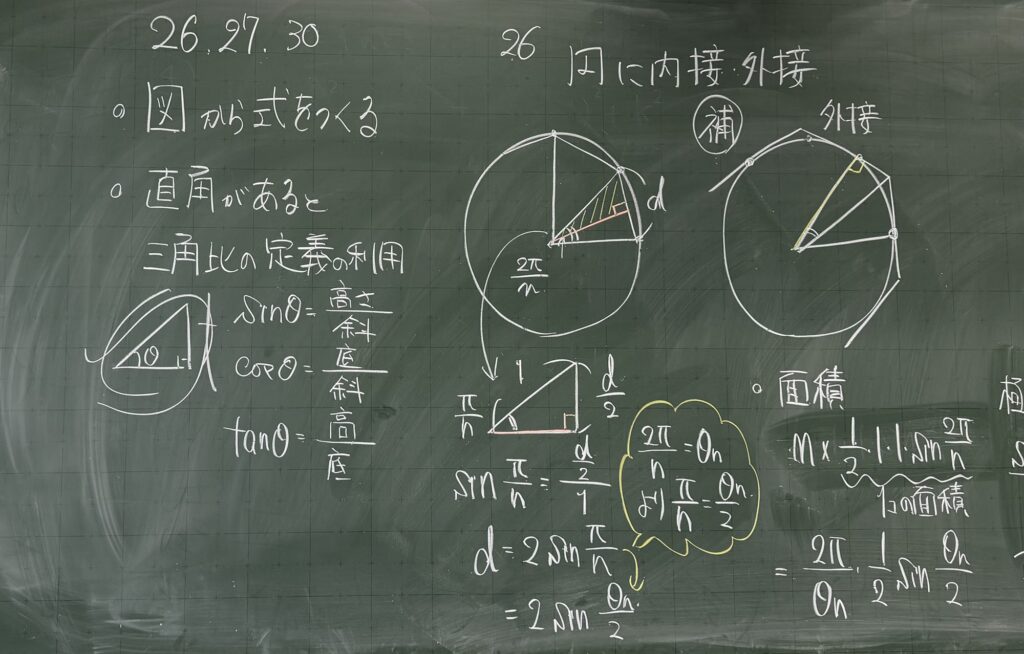 26.27.30
。図から式をつくる
。直角があると
三角比の定義の利用
θ
sinθ = 高さ/斜
cosθ = 底/斜
tanθ = 高/底
26
円に内接・外接
d
2π/n
1
d/2
π/n
sin π/n = (d/2)/1
d = 2 sin π/n
= 2 sin θn/2
2π/n = θn
より π/n = θn/2
補
外接
。面積
n × 1/2・1・1・sin 2π/n
1つの面積
= 2π/θn・1/2 sin θn/2